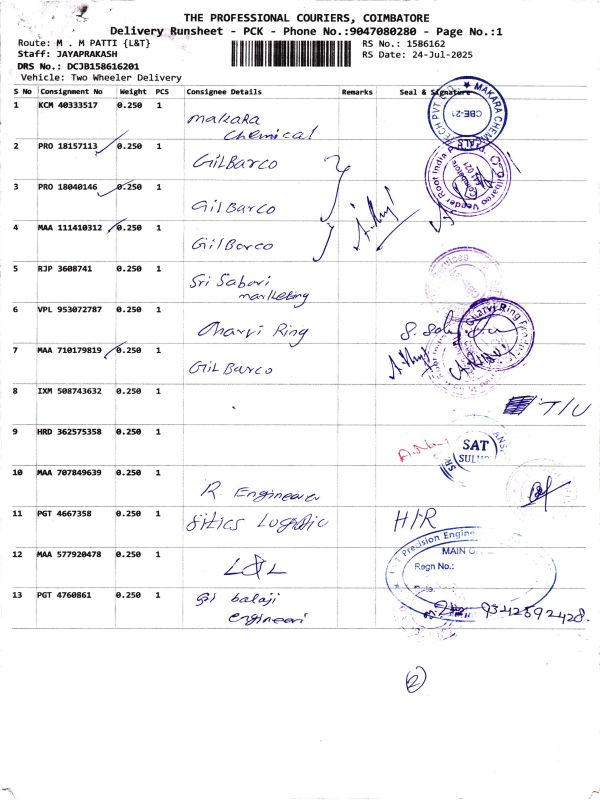 THE PROFESSIONAL COURIERS, COIMBATORE
Delivery Runsheet - PCK - Phone No.:9047080280 - Page No.:1
Route: M . M PATTI {L&T}
RS No.: 1586162
Staff: JAYAPRAKASH
RS Date: 24-Jul-2025
DRS No.: DCJB158616201
Vehicle: Two Wheeler Delivery
S No Consignment No Weight PCS Consignee Details Remarks Seal & Signature
1 KCM 40333517 0.250 1 Makara Chemical
MAKARA CHEM
CBE-21
2 PRO 18157113 0.250 1 GilBarco
3 PRO 18040146 0.250 1 GilBarco
Gilbarco Veeder Root India
Coimbatore
641 021
4 MAA 111410312 0.250 1 GilBarco
5 RJP 3608741 0.250 1 Sri Sabari marketing
6 VPL 953072787 0.250 1 Charvi Ring
Charvi Ring
7 MAA 710179819 0.250 1 GilBarco
8 IXM 508743632 0.250 1 T/U
9 HRD 362575358 0.250 1
SAT
SULUR
10 MAA 707849639 0.250 1 R. Engineera
11 PGT 4667358 0.250 1 Sitics Logistic H/R
12 MAA 577920478 0.250 1 L&L
Precision Engine
MAIN
Regn No.:
Date:
13 PGT 4760861 0.250 1 Sri balaji engineeri 9342592428.
2